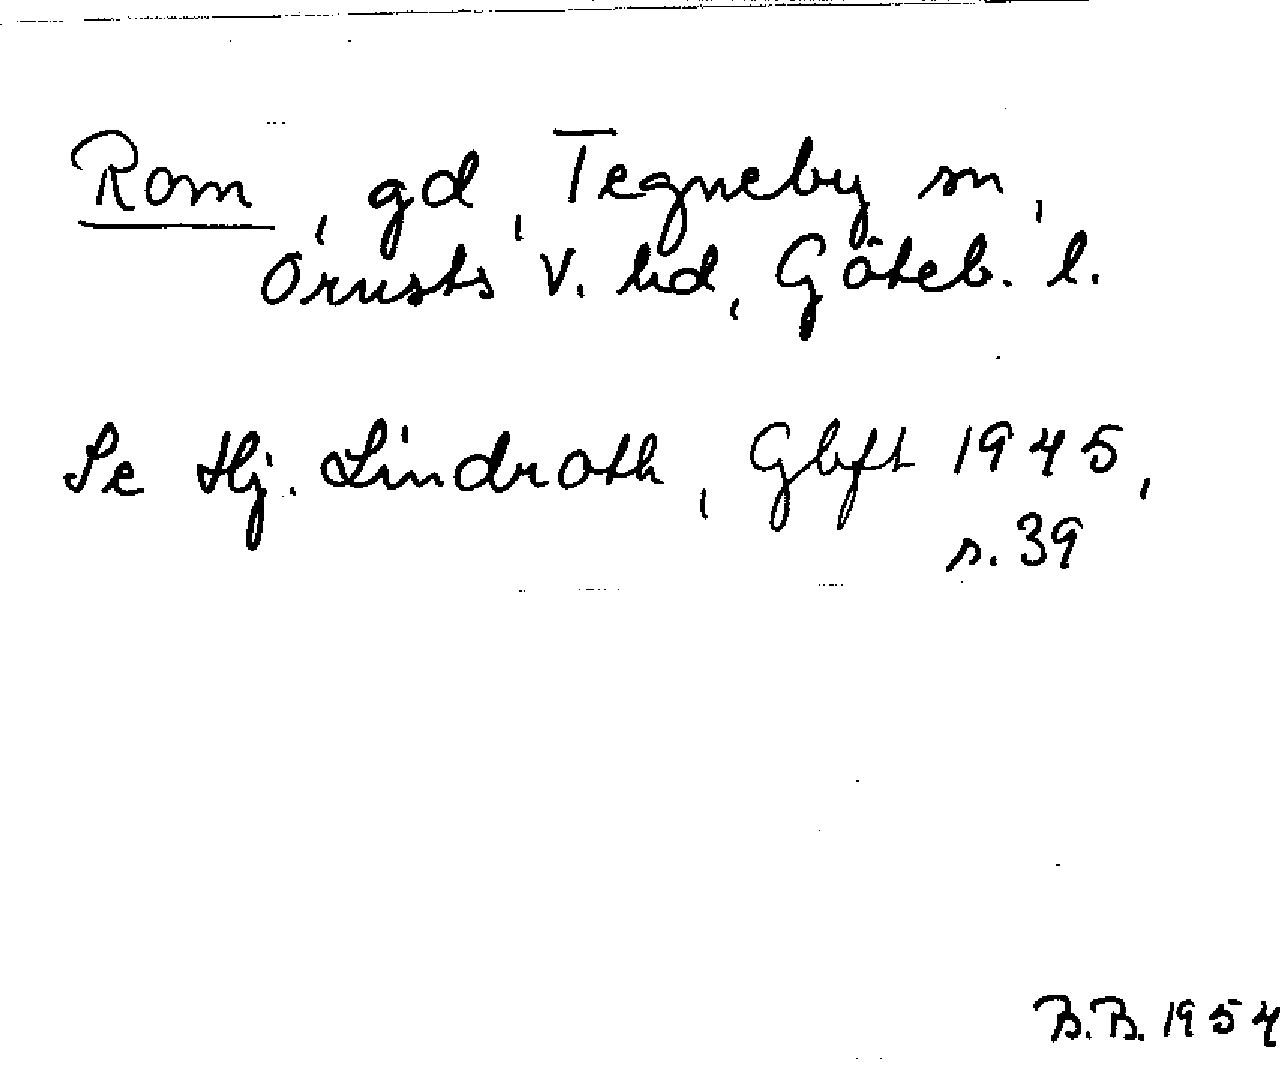 Rom, gd, Tegneby sn,
Orusts V. hd, Göteb. l.
Se Hj. Lindroth, Gbft 1945,
s. 39
B.B. 1954